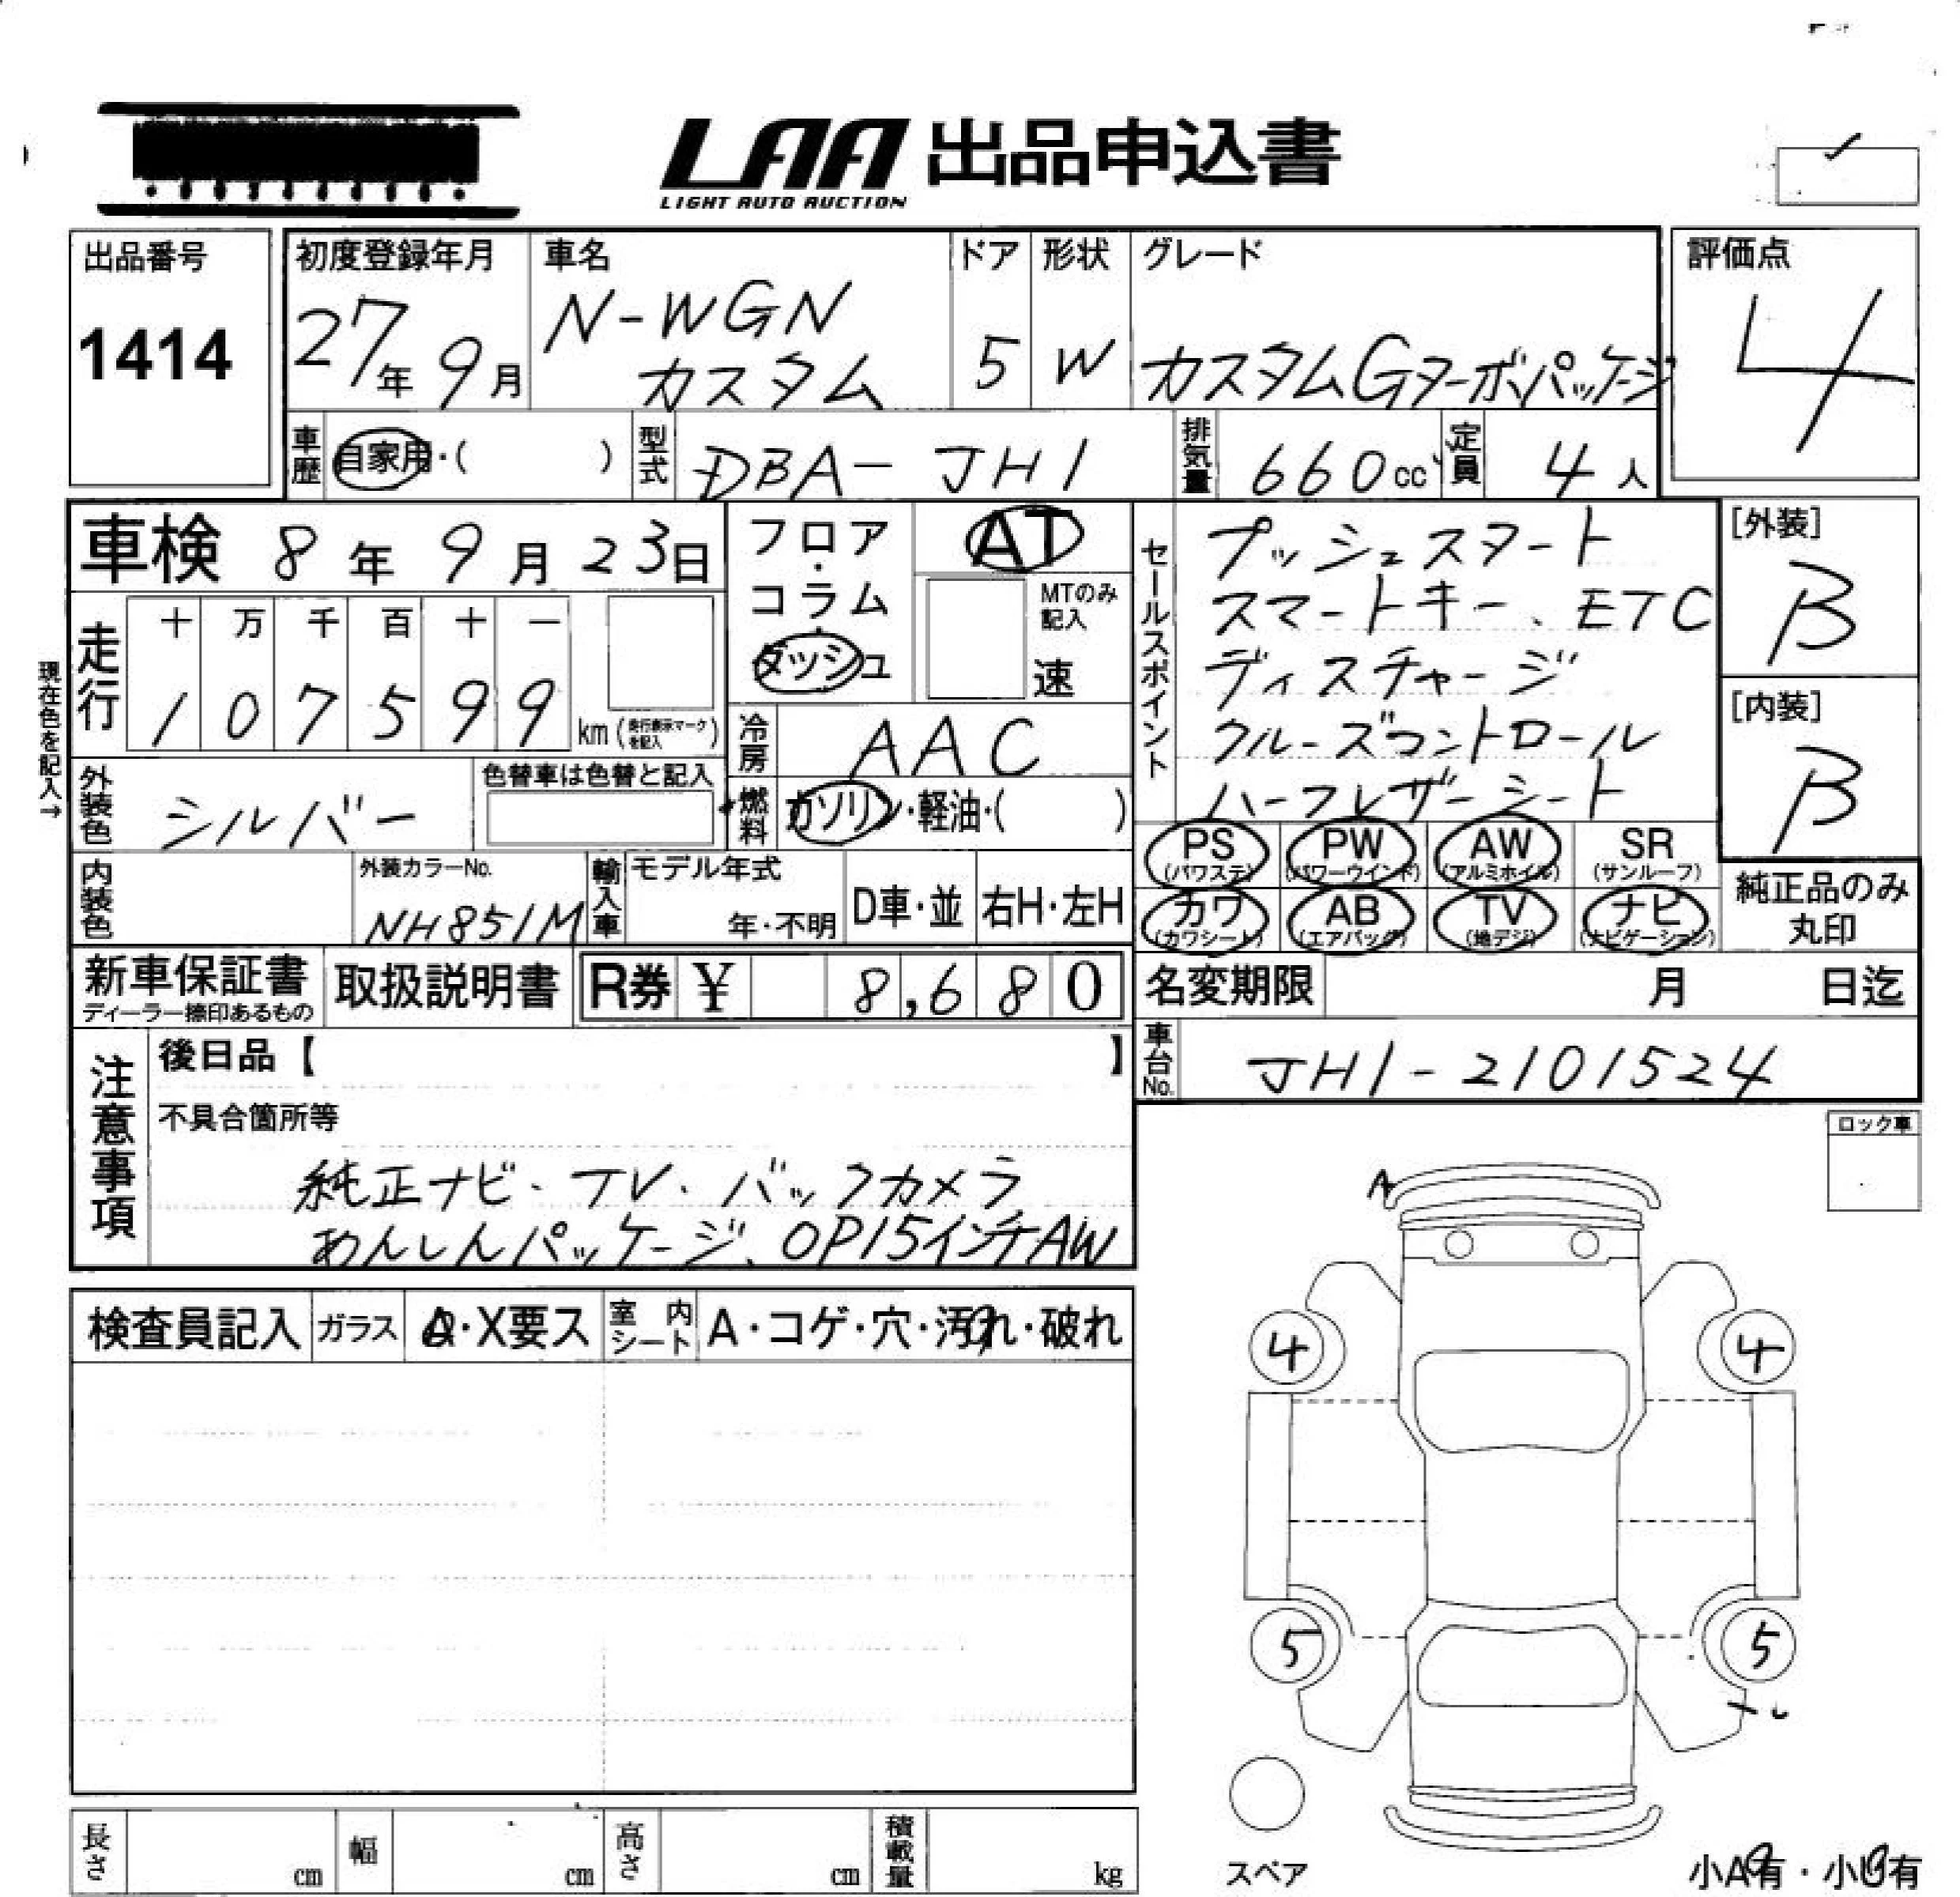 LAA 出品申込書
LIGHT AUTO AUCTION
出品番号
1414
初度登録年月
27年 9月
車名
N-WGN
カスタム
ドア
5
形状
W
グレード
カスタムGターボパッケージ
評価点
4
車歴 自家用・( )
型式 DBA-JH1
排気量 660cc
定員 4人
車検 8年 9月 23日
フロア・コラム・ダッシュ
AT
MTのみ記入
速
走行
十 万 千 百 十 一
1 0 7 5 9 9 km (走行表示マークを記入)
現在色を記入→
冷房 AAC
外装色 シルバー
色替車は色替と記入
燃料 ガソリン・軽油・( )
セールスポイント
プッシュスタート
スマートキー、ETC
ディスチャージ
クルーズコントロール
ハーフレザーシート
[外装]
B
[内装]
B
PS (パワステ) PW (パワーウインド) AW (アルミホイル) SR (サンルーフ)
カワ (カワシート) AB (エアバッグ) TV (地デジ) ナビ (ナビゲーション)
純正品のみ
丸印
内装色
外装カラーNo.
NH851M
輸入車
モデル年式
年・不明
D車・並
右H・左H
新車保証書
ディーラー捺印あるもの
取扱説明書
R券 ¥ 8,680
名変期限 月 日迄
車台No. JH1-2101524
注意事項
後日品【 】
不具合箇所等
純正ナビ、TV、バックカメラ
あんしんパッケージ、OP15インチAW
ロック車
A
検査員記入
ガラス A・X要ス
室内シート A・コゲ・穴・汚れ・破れ
4 4
5 5
スペア
小A有・小U有
長さ cm
幅 cm
高さ cm
積載量 kg